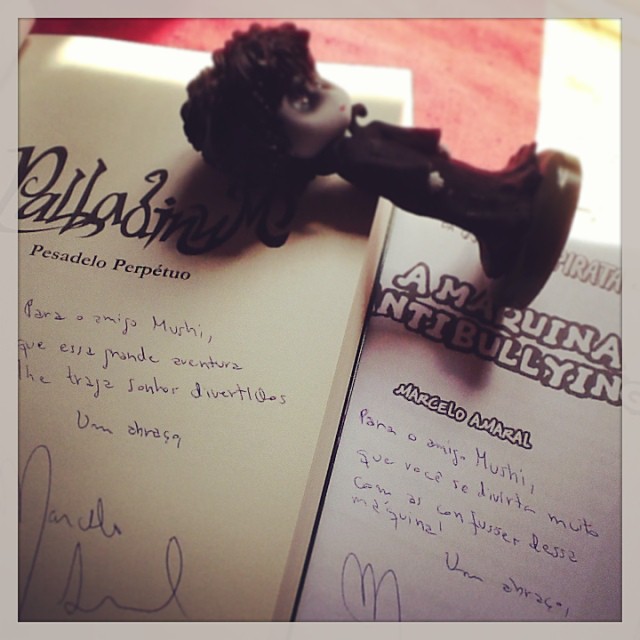 Palladinum
Pesadelo Perpétuo
Para o amigo Mushi,
que essa grande aventura
lhe traja sonhos divertidos
Um abraço
Marcelo
Amaral
PIRATA
A MÁQUINA
ANTIBULLYING
MARCELO AMARAL
Para o amigo Mushi,
que você se divirta muito
com as confusões dessa
máquina!
Um abraço,
M